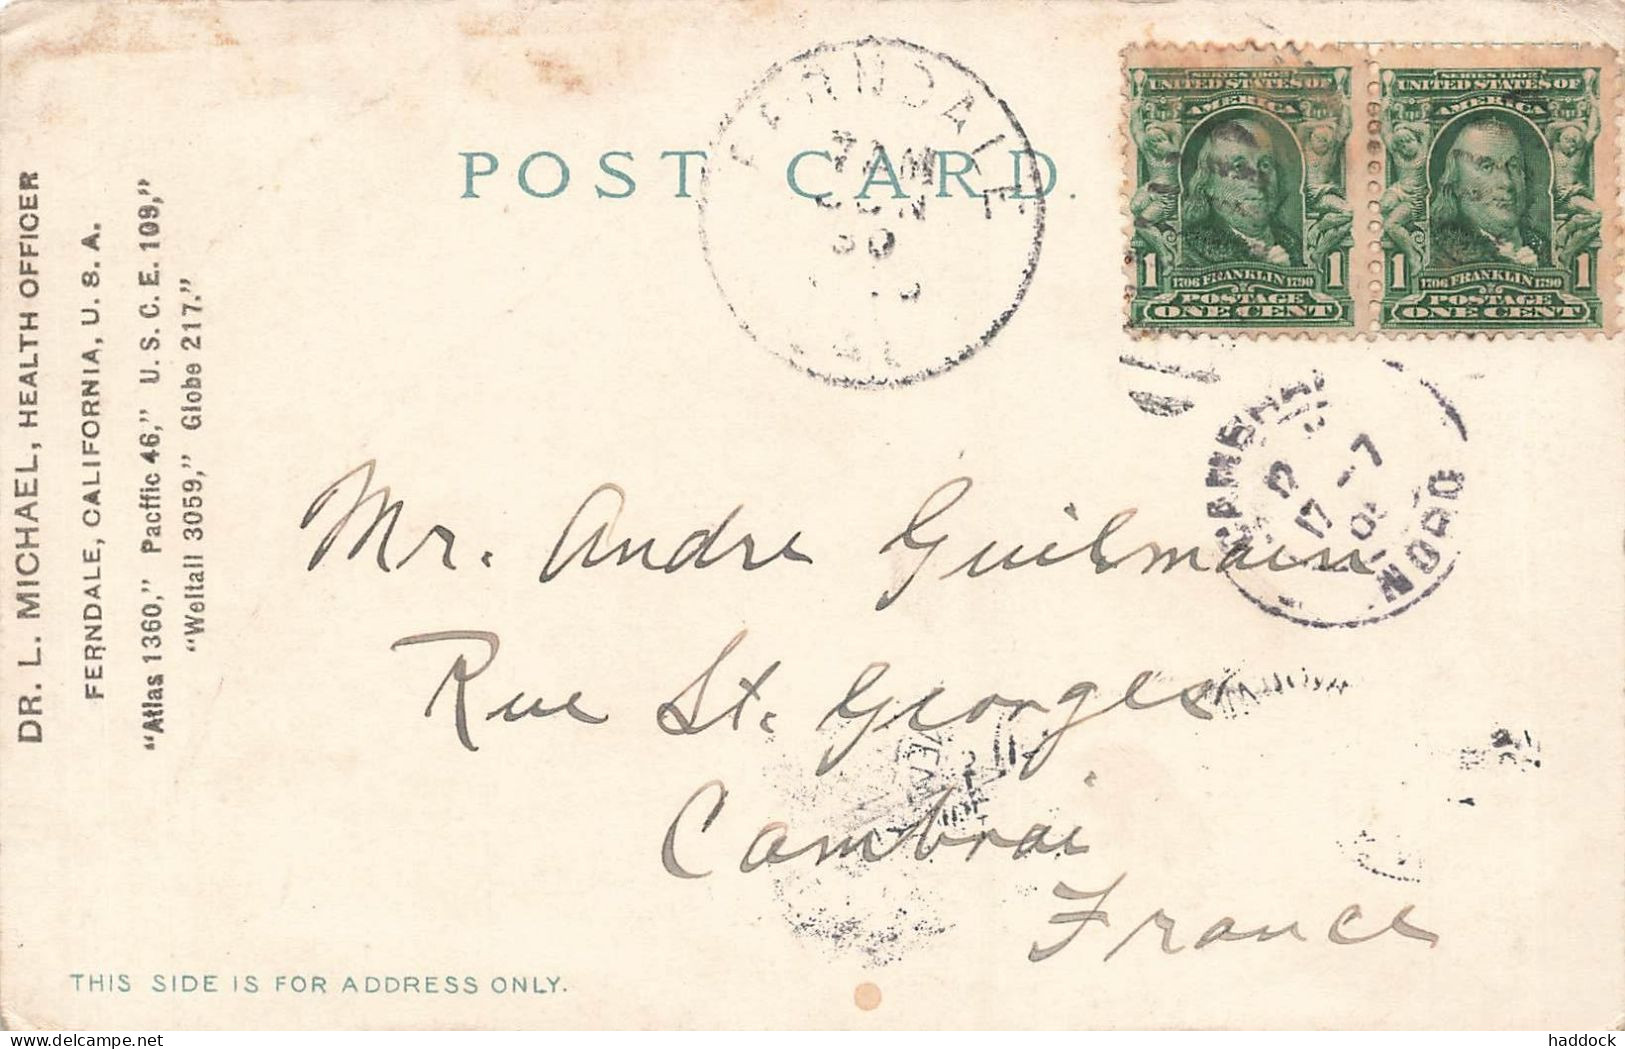 DR. L. MICHAEL, HEALTH OFFICER
FERNDALE, CALIFORNIA, U. S. A.
"Atlas 1360," Pacffic 46," U. S. C. E. 109,"
"Weltall 3059," Globe 217."
POST CARD.
FERNDALE
7 AM
JUN
30
CAL
SERIES 1902
UNITED STATES OF
AMERICA
1 1706 FRANKLIN 1790 1
POSTAGE
ONE CENT
SERIES 1902
UNITED STATES OF
AMERICA
1 1706 FRANKLIN 1790 1
POSTAGE
ONE CENT
CAMBRAI
17 -7
NORD
Mr. Andre Guilmain
Rue St. Georges
Cambrai
France
THIS SIDE IS FOR ADDRESS ONLY.
haddock